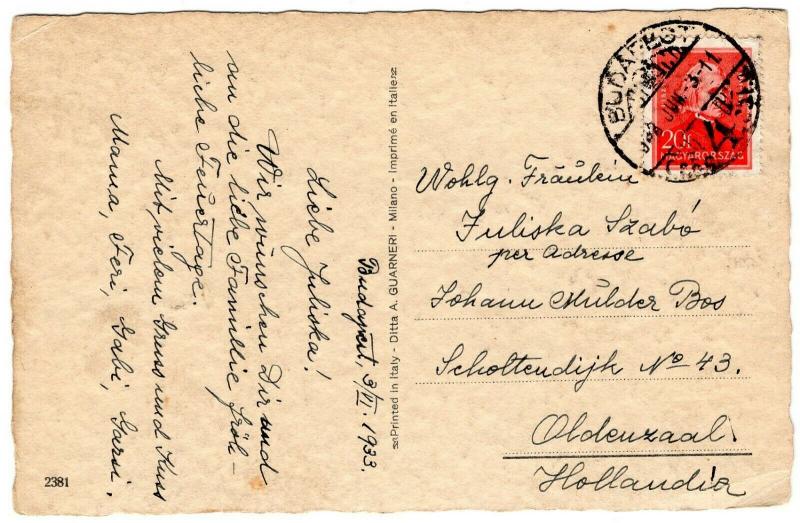 Budapest, 3/VI. 1933.
Liebe Juliska!
Wir wünschen Dir und
an die liebe Familie fröh-
liche Feuertage.
Mit vielem Gruss und Kuss
Mama, Feri, Gabi, Garsi.
2381
Printed in Italy - Ditta A. GUARNERI - Milano - Imprimé en Italie
BUDAPEST
20f
MAGYARORSZÁG
Wohlg. Fräulein
Juliska Szabó
per Adresse
Johann Mulder Bos
Scholtendijk No 43.
Oldenzaal.
Hollandia